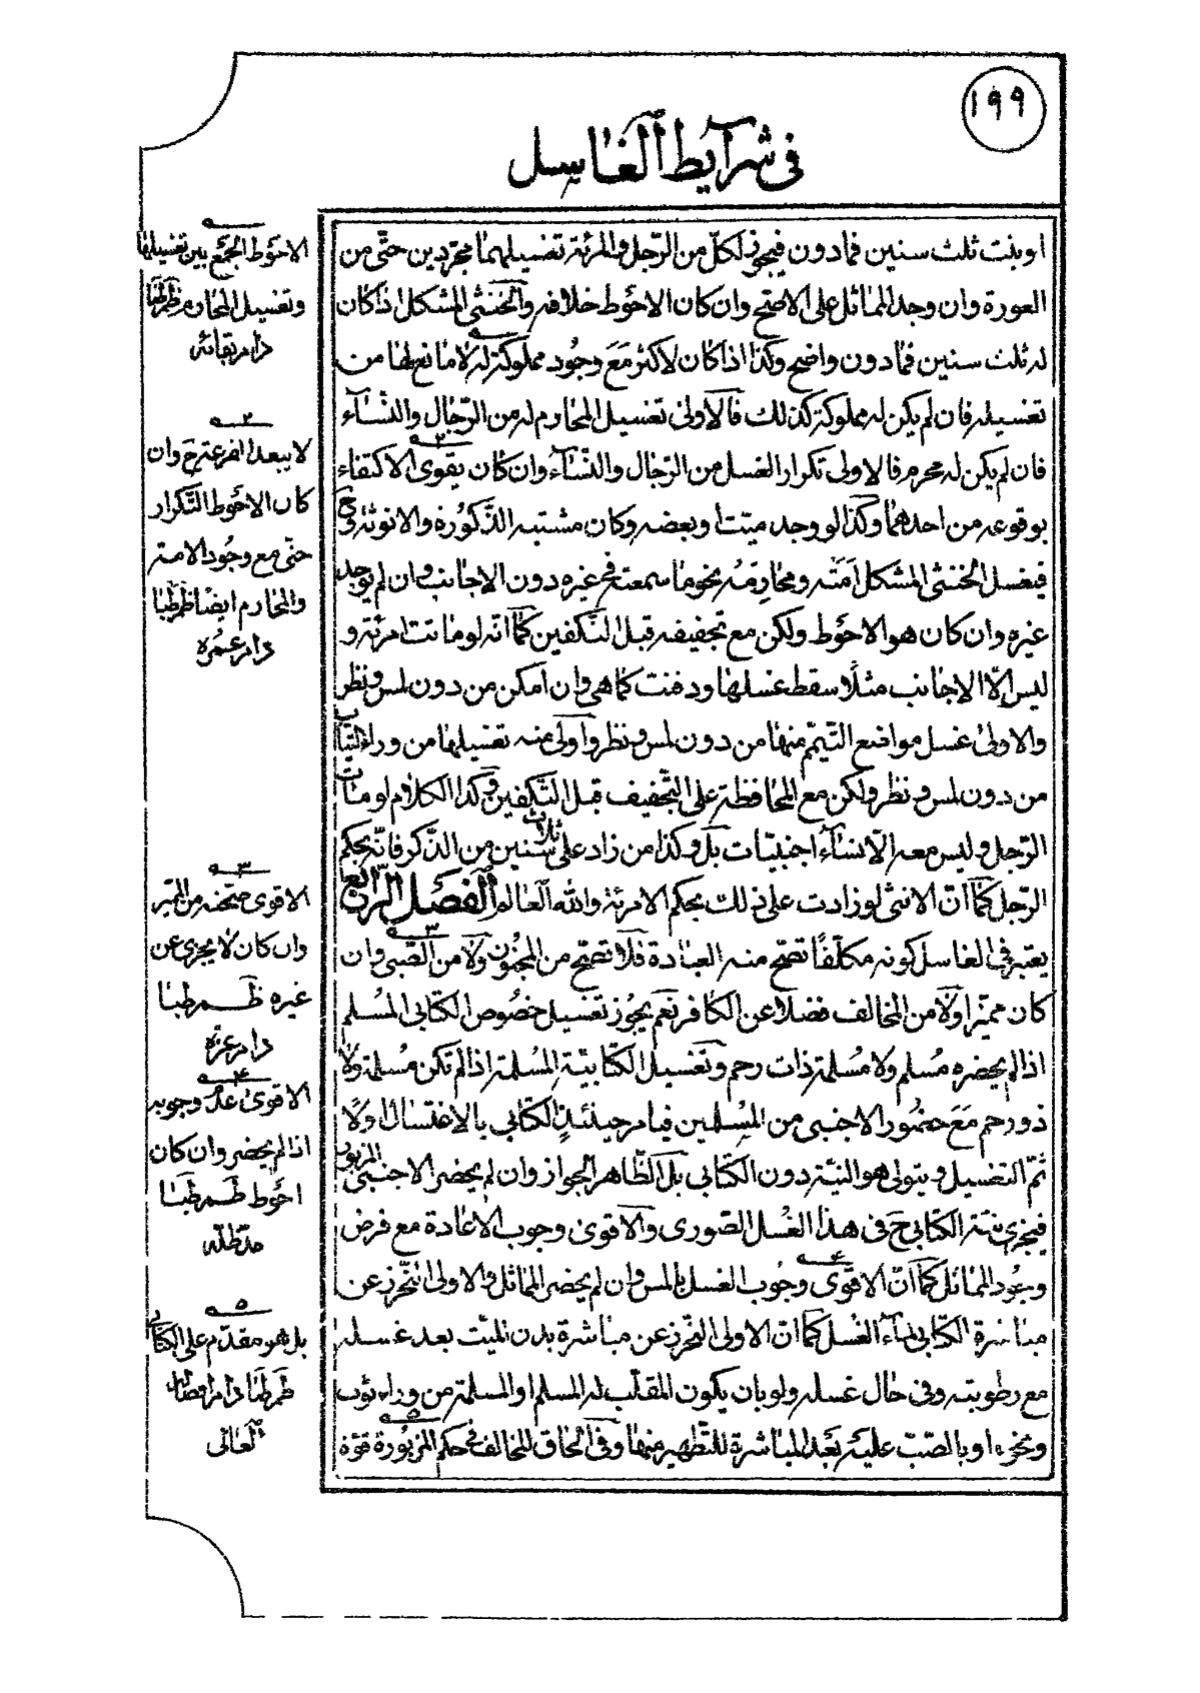 ١٩٩
في شرآيط الغاسل
او بنت ثلث سنين فمادون فيجوز لكلّ من الرّجل والمرئة تغسيلهما مجرّدين حتّى من
العورة وان وجد المماثل على الاصّح وان كان الاحوط خلافه والخنثى المشكل اذا كان
له ثلث سنين فمادون واضح وكذا اذا كان لاكثر مَعَ وجُود مملوكة له لا مانع لها من
تغسيله فان لم يكن له مملوكة كذلك فالاولى تغسيل المحارم له من الرّجال والنّسآء
فان لم يكن له محرم فالاولى تكرار الغسل من الرّجال والنّسآء وان كان يقوى الاكتفاء
بوقوعه من احدهما وكذا لو وجد ميّت او بعضه وكان مشتبه الذّكورة والانوثة وح
فيغسل الخنثى المشكل امته ومحارمه نحو ما سمعته في غيره دون الاجانب وان لم يوجد
غيره وان كان هو الاحوط ولكن مع تجفيفه قبل التّكفين كما انّه لو ماتت امرئة و
ليس الّا الاجانب مثلًا سقط غسلها ودفنت كما هى وان امكن من دون لمس ونظر
والاولى غسل مواضع التّيمّم منها من دون لمس ونظر واولى منه تغسيلها من وراء الثياب
من دون لمس ونظر ولكن مع المحافظة على التّجفيف قبل التّكفين وكذا الكلام لو مات
الرّجل وليس معه الّا نسآء اجنبيّات بل وكذا من زاد على ثلاث سنين من الذّكر فانّه بحكم
الرّجل كما انّ الانثى لو زادت على ذلك بحكم الامرئة والله العالم الفصل الرّابع
يعتبر في الغاسل كونه مكلّفًا تصّح منه العبادة فلا تصّح من المجنون ولا من الصّبى وان
كان مميّزا ولا من المخالف فضلا عن الكافر نعم يجُوز تغسيل خصُوص الكتابى المُسلم
اذا لم يحضره مُسلم ولا مُسلمة ذات رحم وتغسيل الكتابيّة المُسلمة اذا لم تكن مُسلمة ولا
ذو رحم مَعَ حضُور الاجنبى من المُسلمين فيامر حينئذٍ الكتابي بالاغتسال اوّلًا
ثمّ التغسيل ويتولى هو النيّة دون الكتابي بل الظّاهر الجواز وان لم يحضر الاجنبىّ المزبور
فيجزى نيّة الكتابي ح في هذا الغُسل الصّورى والاقوى وجوب الاعادة مع فرض
وجُود المماثل كما انّ الاقوى وجُوب الغسل بالمس وان لم يحضر المماثل والاولى التّحرّز عن
مباشرة الكتابي لماء الغسل كما انّ الاولى التّحرّز عن مباشرة بدن الميّت بعد غسله
مع رطوبته وفي حال غسله ولو بان يكون المقلّب له المسلم او المسلمة من وراء ثوب
ونحوه او بالصّبّ عليه بَعد المباشرة للتّطهير منهما وفي الحاق المخالف في حكم المزبورة قوّة
١
الاحوط الجمع بين تغسيلها
وتغسيل المحارم ظم طبا
دام بقائه
٢
لا يبعد القرعة ح وان
كان الاحوط التّكرار
حتّى مع وجُود الامة
والمحارم ايضا ظم طبا
دام عمُره
٣
الاقوى صحّته من المميّز
وان كان لا يجزى عن
غيره ظم طبا
دام عزّه
٤
الاقوى عدم وجوبه
اذا لم يحضر وان كان
احوط ظم طبا
مدّ ظلّه
٥
بل هو مقدّم على الكتابي
ظم طبا دام افضاله
العالى